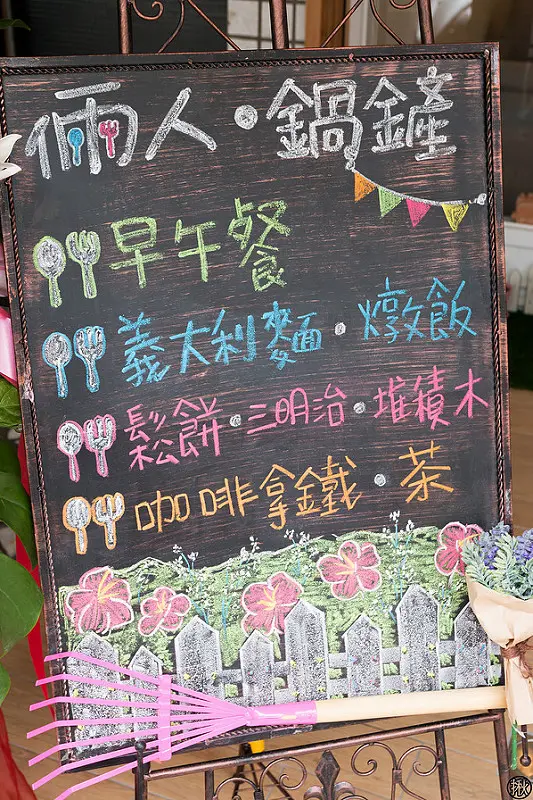 倆人・鍋鏟
早午餐
義大利麵・燉飯
鬆餅・三明治・堆積木
咖啡拿鐵・茶